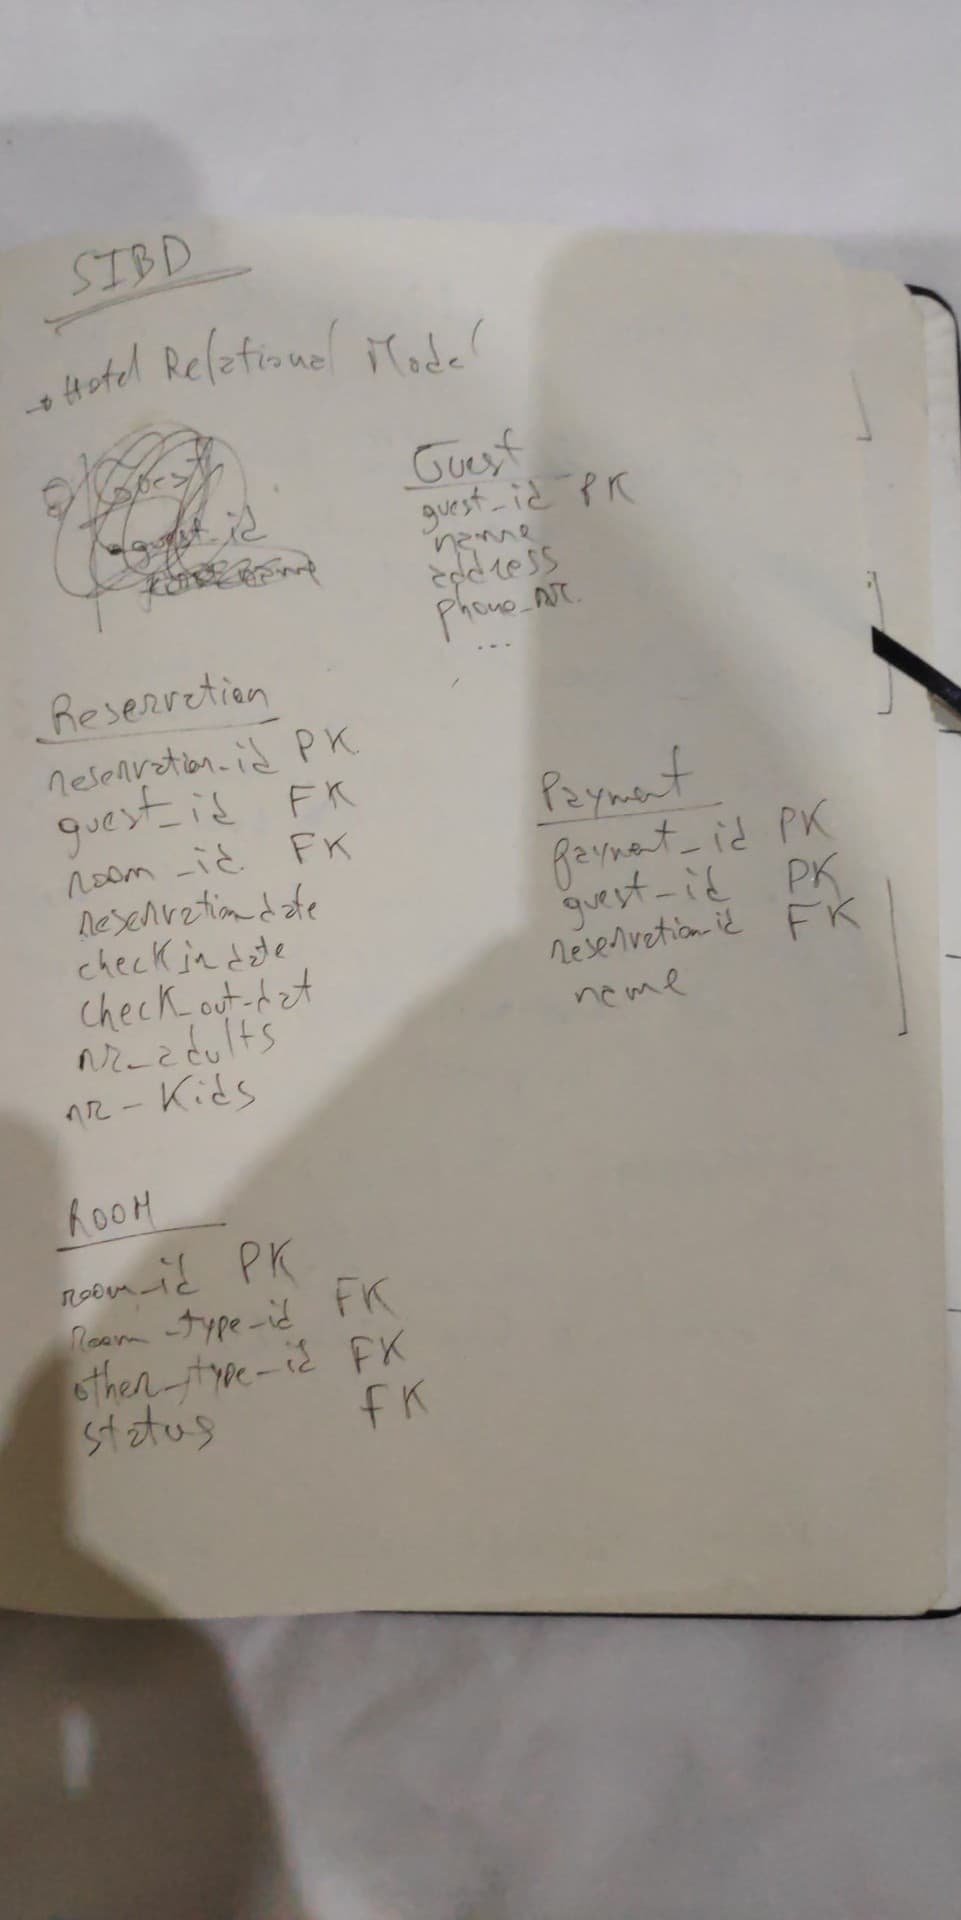 SIBD
→ Hotel Relational Model
Guest
guest_id
Guest
guest_id - PK
name
address
phone_nr.
...
Reservation
reservation_id PK
guest_id FK
room_id FK
reservation_date
check_in_date
check_out_dat
nr_adults
nr_kids
Payment
payment_id PK
guest_id PK
reservation_id FK
name
ROOM
room_id PK
Room_type_id FK
other_type_id FK
status FK